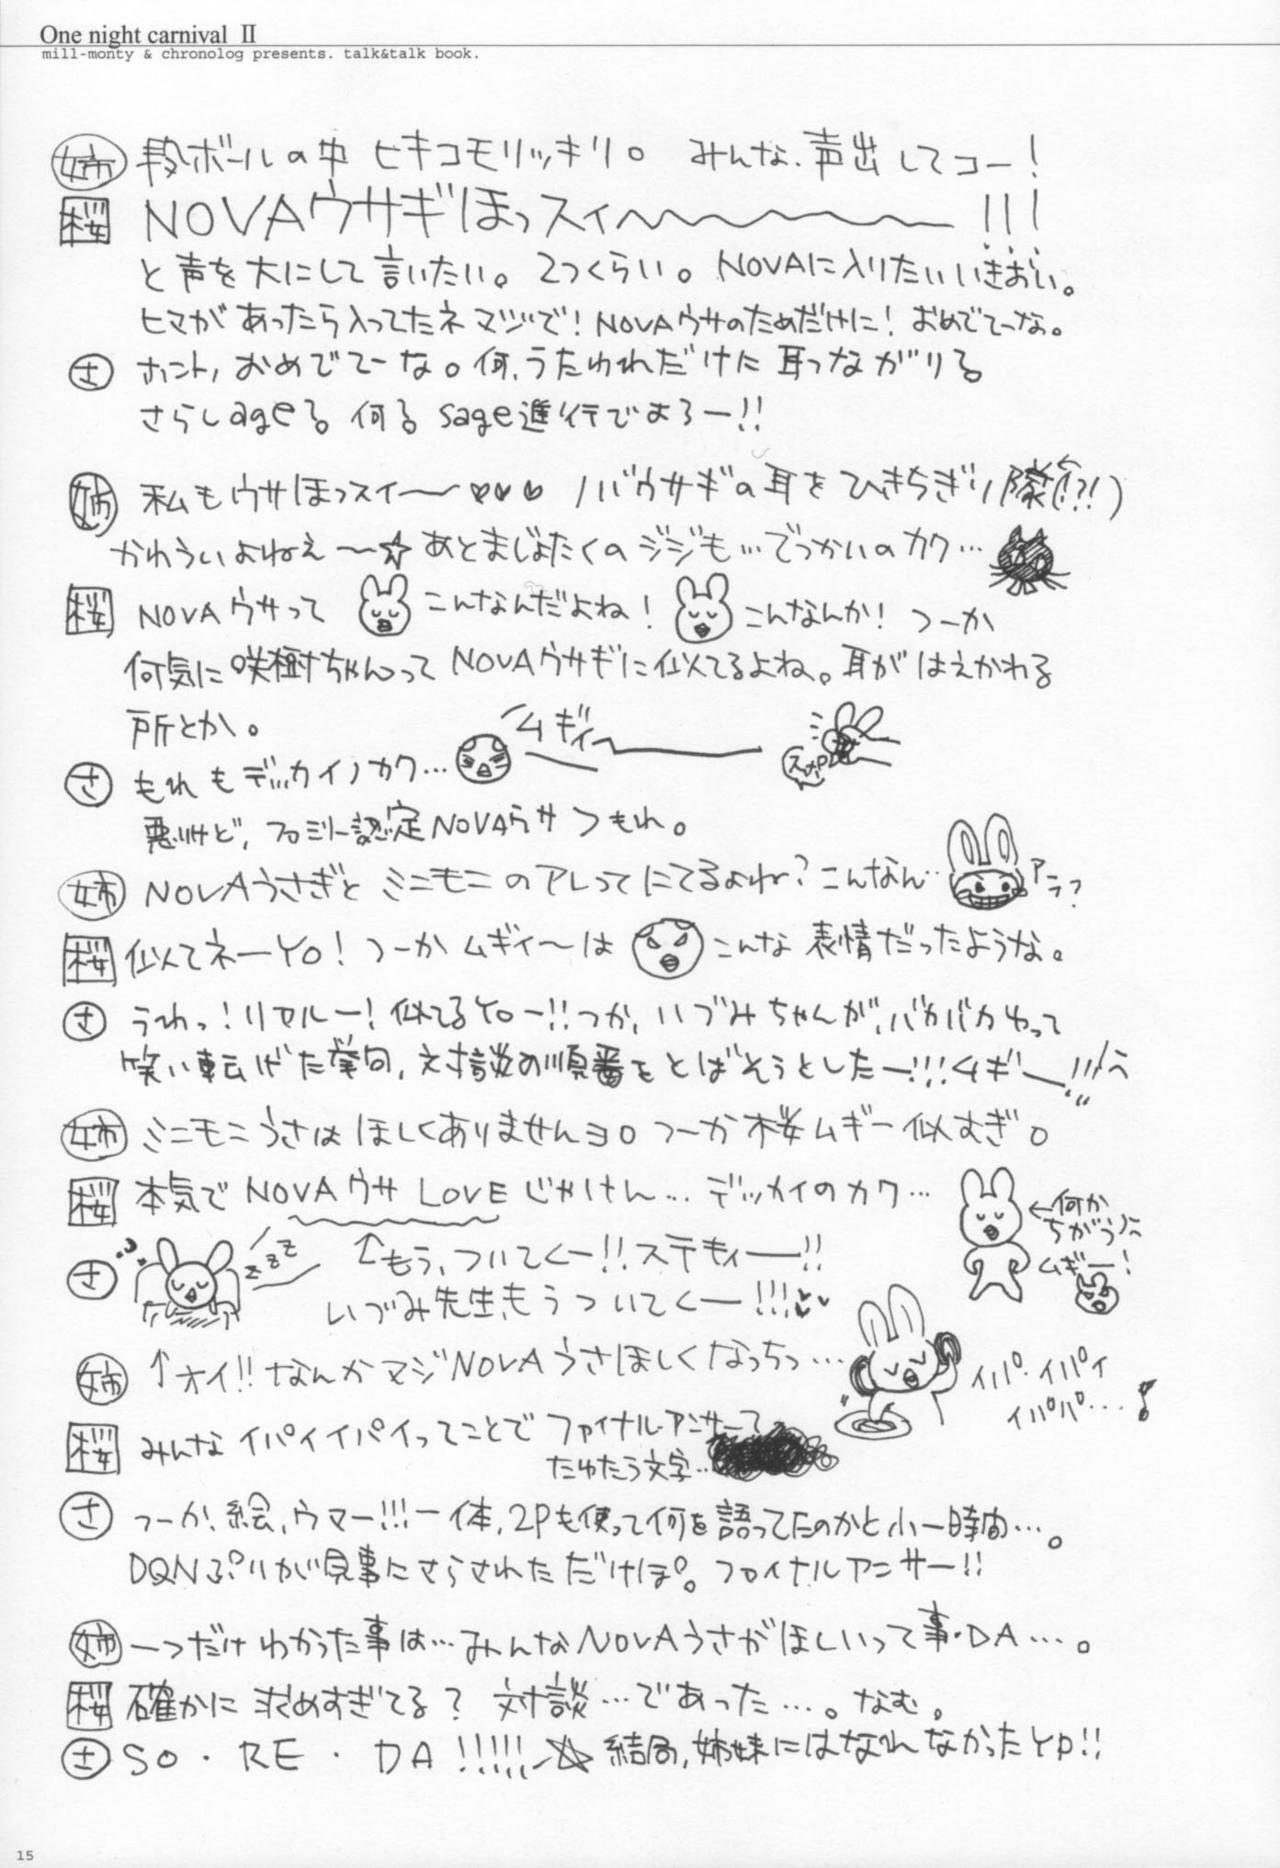 One night carnival II
mill-monty & chronolog presents. talk&talk book.
姉 段ボールの中 ヒキコモリッキリ。 みんな、声出してコー!
桜 NOVAウサギほっスィ〜〜〜〜〜!!!
と声を大にして言いたい。2つくらい。NOVAに入りたいいきおい。
ヒマがあったら入ってたネ マジで! NOVAウサのためだけに! おめでてーな。
さ ホント、おめでてーな。何、うたわれだけに耳つながり?る
さらしageる。何る sage進行でよろー!!
姉 私もウサほっスィ〜〜♥♥♥ ノバウサギの耳をひきちぎり隊(!?!)
かわういよねえ〜☆ あとまじょたくのジジも…でっかいのカク…
桜 NOVAウサって こんなんだよね! こんなんか! つーか
何気に咲樹ちゃんってNOVAウサギに似てるよね。耳がはえかわる
所とか。 ムギィ〜
さ もれもデッカイノカク… スポ
悪いけど、ファミリー認定NOVAウサつもれ。
姉 NOVAうさぎと ミニモニのアレってにてるよね?こんなん… アラ?
桜 似てネーYO! つーか ムギィ〜は こんな 表情だったような。
さ うわっ!リアルー! 似てるYoー!!つか、いづみちゃんが、バカバカわって
笑い転げた挙句、対談の順番をとばそうとしたー!!!ムギー!!!
姉 ミニモニうさはほしくありませんヨ。つーか桜ムギー似すぎ。
桜 本気でNOVAウサ LOVEじゃけん… デッカイのカク… ←何か
ちがう
ムギー!
さ zzz ↑もう、ついてくー!!ステキィー!!
いづみ先生、もうついてくー!!!♥♥
姉 ↑オイ!!なんかマジNOVAうさほしくなっちっ… イパ・イパイ
イパパ…♪
桜 みんなイパイイパイってことで ファイナルアンサーて
たゆたう文字…
さ つーか、絵、ウマー!!!一体、2Pも使って何を語ってたのかと小一時間…。
DQNぷりが見事にさらされただけぽ。ファイナルアンサー!!
姉 一つだけわかった事は…みんなNOVAうさがほしいって事・DA…。
桜 確かに求めすぎてる? 対談…であった…。なむ。
さ SO・RE・DA!!!!!☆ 結局、姉妹にはなれなかったYO!!
15